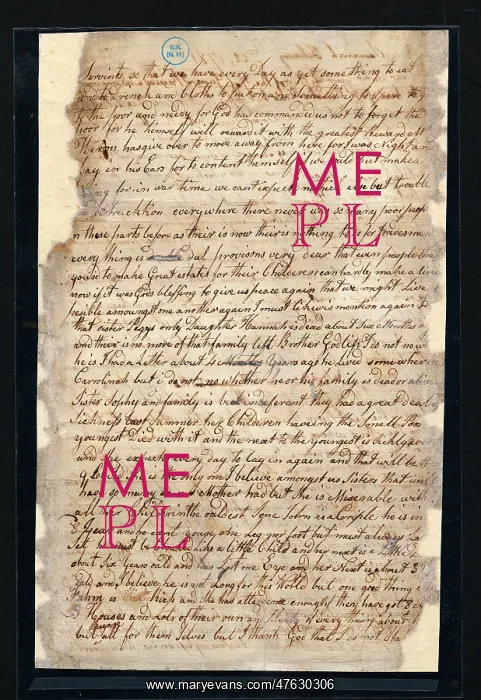 B.M.
(N.H.)
Servints so that we have every Day as yet something to eat
and to Drinck and Cloths to put on and something to spare
the poor and needy for God has command us not to forget the
poor for he himself will reward it with the greatest reward
over to move away from here for I was Night and
Day in his Ears for to content himself
for in war time we can't expect nothing else but trouble
and Destrucktion everywhere there never was so many poor people
in these parts before as their is now their is nothing to do for tradesmen
every thing is dul provisons very dear that even people that
yous'd to make Great estates for their Childeren can hardly make a live
now if it was Gods blessing to give us peace again that we might Live
peaible amoungst one another again I must likewis mention again
that sister Pegys only Daughter Hannah is dead about Six Months
and their is no more of that family left Brother Godlif I do not now
he is I had a Letter about 4 Years ago he Lived somewher
Carolinah but i do not no whether he or his family is dead or alive
Sister Sophy and family is but indeferent they had a great deal
Sickness Last Summer her Children haveing the Small Pox
youngest Died with it and the next to the youngest is Sickly
and she expects every day to lay in again and that will be
is the only one I believe amoungst us Sisters that will
have so many as Mother had but She is Miserable with
all her Childeren the oaldest Sone John is a Criple he is in
Year and no youse one Leg nor foot but must always
be like a little Child and her next is a little
about Six Years oald and has Lost one Eye and her Next is about 3
oald and I believe he is not Long for this World but one good thing
is rich and she has attendence enough they have got 8 or
Houses and Lots of their own and plenty of every thing about
but all for them Selves but I thank God that I do not
ME
PL
ME
PL
www.maryevans.com/47630306